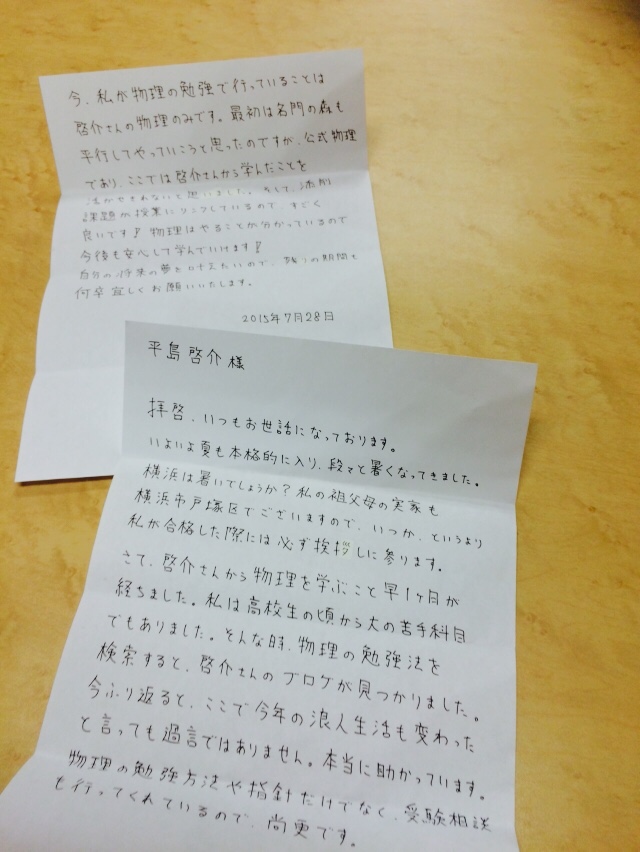 今、私が物理の勉強で行っていることは
啓介さんの物理のみです。最初は名門の森も
平行してやっていこうと思ったのですが、公式物理
であり、ここでは啓介さんから学んだことを
活かせきれないと思いました。そして、添削
課題が授業にリンクしているので、すごく
良いです！物理はやることが分かっているので
今後も安心して学んでいけます！
自分の将来の夢を叶えたいので、残りの期間も
何卒宜しくお願いいたします。
2015年7月28日
平島啓介様
拝啓、いつもお世話になっております。
いよいよ夏も本格的に入り、段々と暑くなってきました。
横浜は暑いでしょうか？私の祖父母の実家も
横浜市戸塚区でございますので、いつか、というより
私が合格した際には必ず挨拶しに参ります。
さて、啓介さんから物理を学ぶこと早1ヶ月が
経ちました。私は高校生の頃から大の苦手科目
でもありました。そんな時、物理の勉強法を
検索すると、啓介さんのブログが見つかりました。
今ふり返ると、ここで今年の浪人生活も変わった
と言っても過言ではありません。本当に助かっています。
物理の勉強方法や指針だけでなく、受験相談
も行ってくれているので、尚更です。